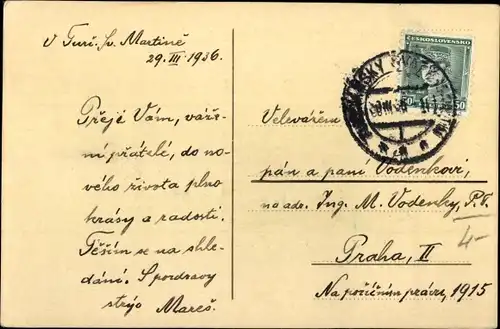 V Turč. Sv. Martině
29. III. 1936.
Přeji Vám, váže-
ní přátelé, do no-
vého života plno
krásy a radosti.
Těším se na shle-
dání. S pozdravy
strýc Mareš.
ČESKOSLOVENSKO
50
Velevážení
pán a paní Vodenkovi,
na adr. Ing. M. Vodenky, P.T.
4-
Praha, II
Na poříčním právu, 1915